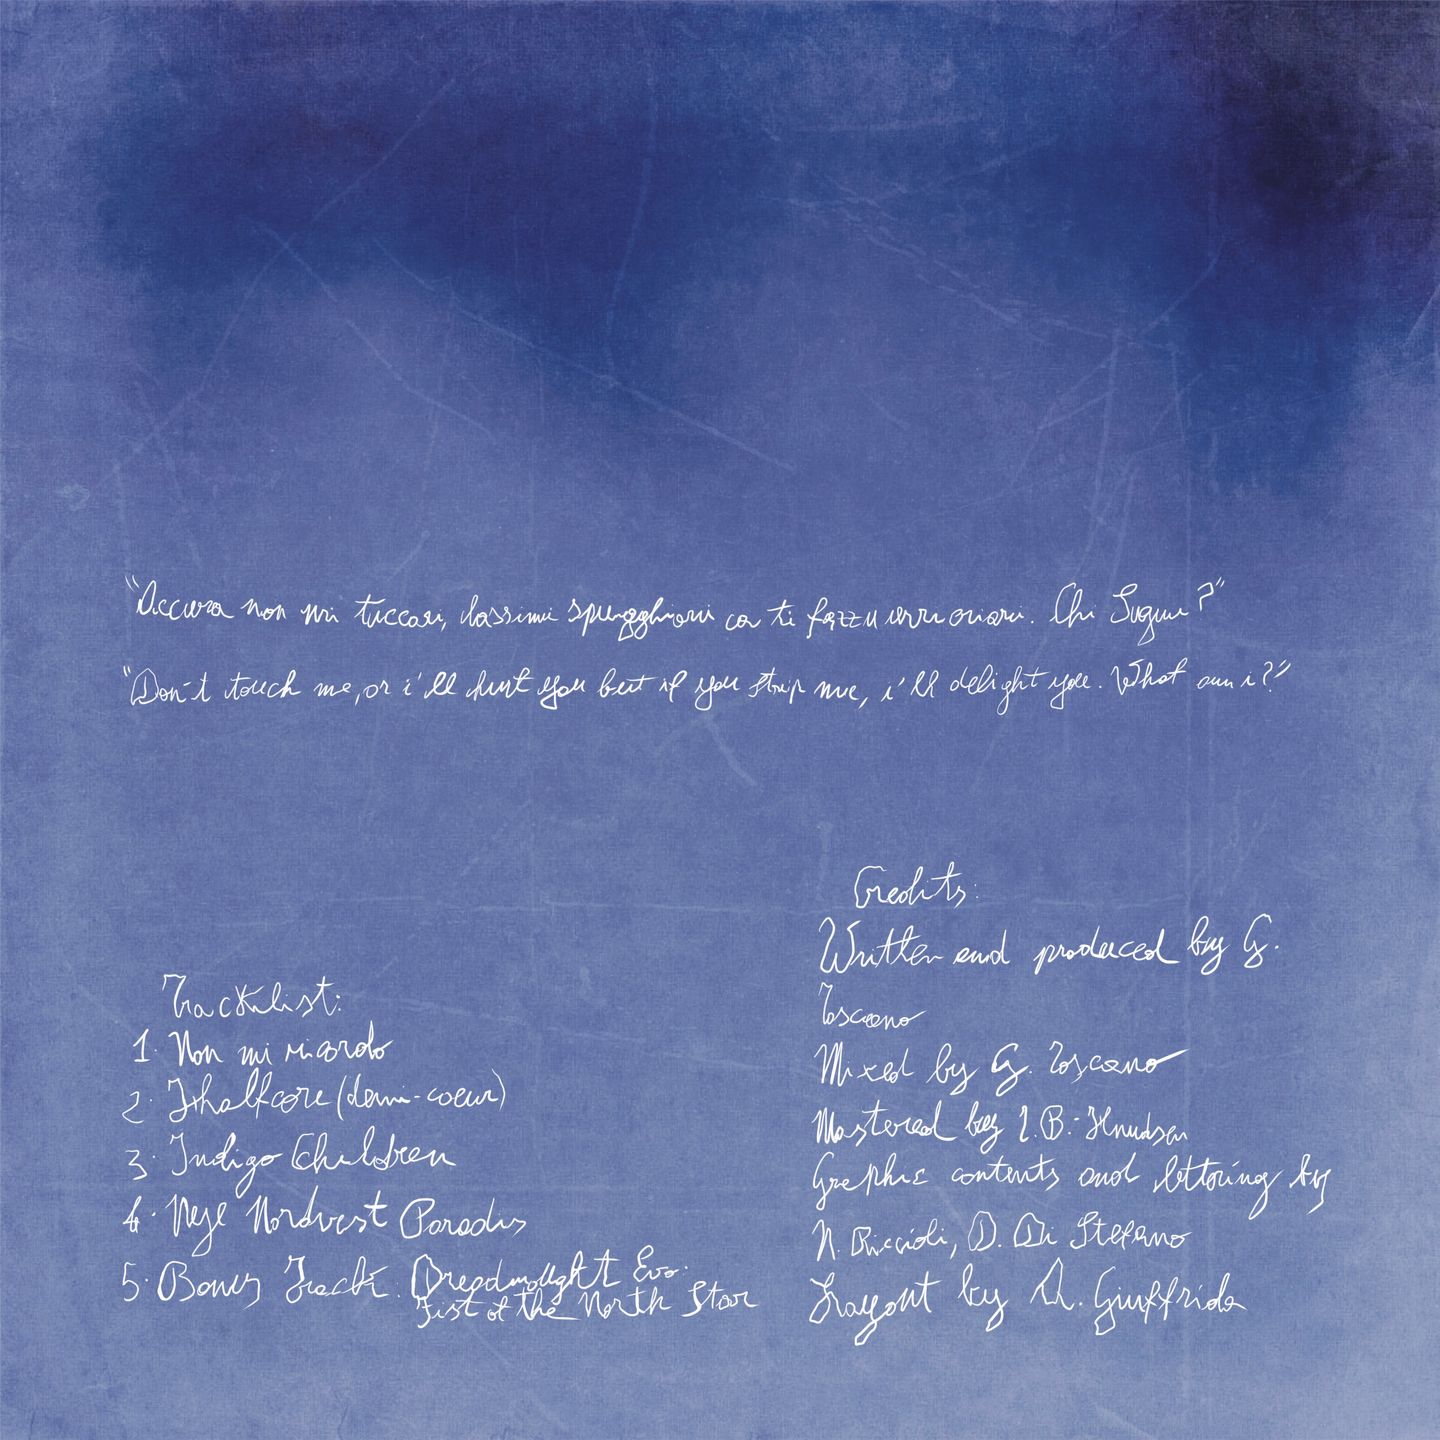 "Accura non mi tuccari, lassimi spugghiari ca ti fazzu arricriari. Chi Sugnu?"
"Don't touch me, or i'll hurt you but if you strip me, i'll delight you. What am i?"
Tracklist:
1. Non mi ricordo
2. Ithalfcore (demi-coeur)
3. Indigo Children
4. Nye Nordvest Paradis
5. Bonus Track: Dreadnought Evo.
Fist of the North Star
Credits:
Written and produced by G.
Toscano
Mixed by G. Toscano
Mastered by B. Knudsen
Graphic contents and lettering by
N. Riccioli, D. Di Stefano
Layout by Giuffrida